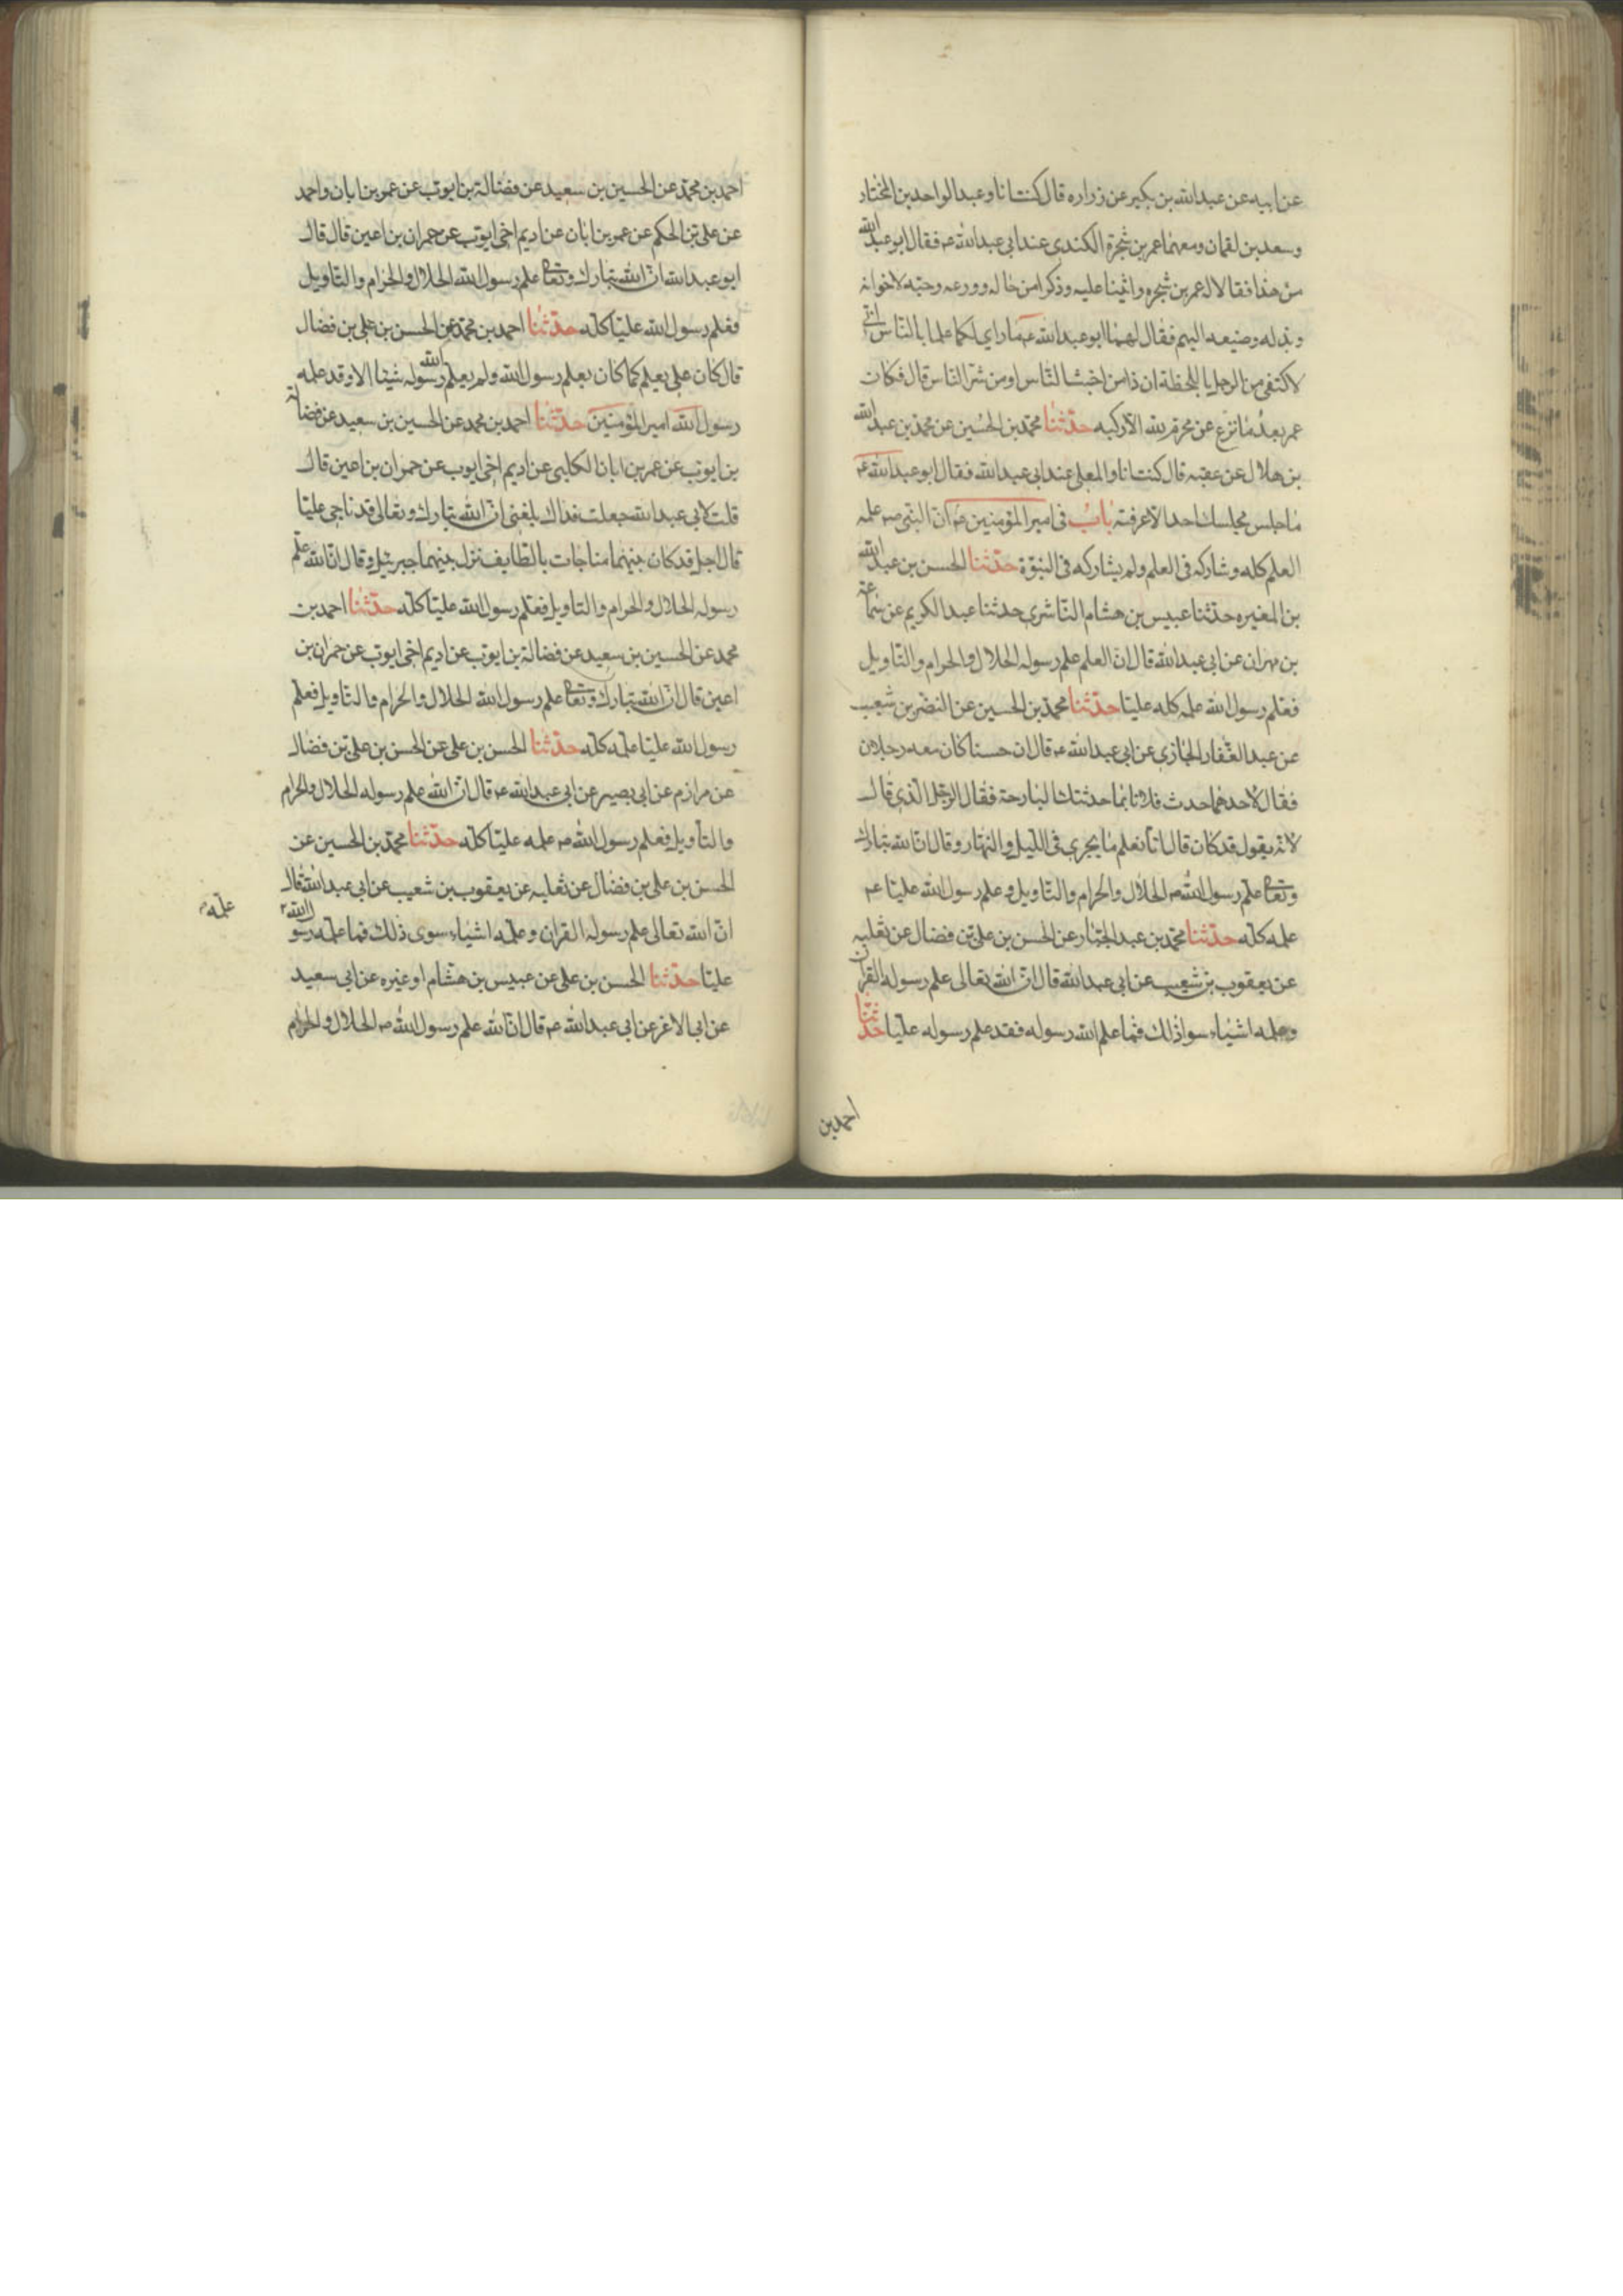 عن ابيه عن عبدالله بن بكير عن زراره قال كنت انا وعبد الواحد بن المختار
وسعد بن لقمان ومعهما عمر بن شجرة الكندى عند ابى عبدالله ع فقال ابو عبدالله
من هذا فقالا له عمر بن شجره واثنينا عليه وذكرا من حاله وورعه وحبه لاخوانه
وبذله وصنيعه اليهم فقال لهما ابو عبدالله ع ما راي لكما علما بالناس انى
لاكتفى من الرجل باللحظة ان ذا من اخبث الناس او من شر الناس قال فكان
عمر بعد ما نزع عن محرم لله الا ركبه حدثنا محمد بن الحسين عن محمد بن عبدالله
بن هلال عن عقبه قال كنت انا والمعلى عند ابى عبدالله فقال ابو عبدالله ع
ما جلس مجلسك احد الا عرفته باب فى امير المؤمنين ع ان النبى ص علمه
العلم كله وشاركه فى العلم ولم يشاركه فى النبوة حدثنا الحسن بن عبدالله
بن المغيره حدثنا عبيس بن هشام الناشرى حدثنا عبد الكريم عن سماعه
بن مهران عن ابى عبدالله قال ان العلم علم رسوله الحلال والحرام والتاويل
فعلم رسول الله علمه كله عليا حدثنا محمد بن الحسين عن النضر بن شعيب
عن عبد الغفار الجازى عن ابى عبدالله ع قال ان حسنا كان معه رجلان
فقال لاحدهما حدث فلانا بما حدثتك البارحة فقال الرجل الذي قال
لانه يقول قد كان قال انا نعلم ما يجرى فى الليل والنهار وقال ان الله تبارك
وتعا علم رسول الله ص الحلال والحرام والتاويل وعلم رسول الله عليا ع
علمه كله حدثنا محمد بن عبد الجبار عن الحسن بن على بن فضال عن ثعلبه
عن يعقوب بن شعيب عن ابى عبدالله قال ان الله تعالى علم رسوله القران
وعلمه اشياء سوا ذلك فما علم الله رسوله فقد علم رسوله عليا حدثنا
احمد بن
احمد بن محمد عن الحسين بن سعيد عن فضالة بن ايوب عن عمر بن ابان واحمد
عن على بن الحكم عن عمر بن ابان عن اديم اخى ايوب عن حمران بن اعين قال قال
ابو عبدالله ان الله تبارك وتعا علم رسول الله الحلال والحرام والتاويل
فعلم رسول الله عليا كله حدثنا احمد بن محمد عن الحسن بن على بن فضال
قال كان على يعلم كما كان يعلم رسول الله ولم يعلم الله رسوله شيئا الا وقد علمه
رسول الله امير المؤمنين حدثنا احمد بن محمد عن الحسين بن سعيد عن فضالة
بن ايوب عن عمر بن ابان الكلبى عن اديم اخى ايوب عن حمران بن اعين قال
قلت لابى عبدالله جعلت فداك بلغنى ان الله تبارك وتعالى قد ناجى عليا
قال اجل قد كان بينهما مناجات بالطايف نزل بينهما جبرئيل وقال ان الله علم
رسوله الحلال والحرام والتاويل فعلم رسول الله عليا كله حدثنا احمد بن
محمد عن الحسين بن سعيد عن فضالة بن ايوب عن اديم اخى ايوب عن حمران بن
اعين قال ان الله تبارك وتعا علم رسول الله الحلال والحرام والتاويل فعلم
رسول الله عليا علمه كله حدثنا الحسن بن على عن الحسن بن على بن فضال
عن مرازم عن ابى بصير عن ابى عبدالله ع قال ان الله علم رسوله الحلال والحرام
والتأويل فعلم رسول الله ص علمه عليا كله حدثنا محمد بن الحسين عن
الحسن بن على بن فضال عن ثعلبه عن يعقوب بن شعيب عن ابى عبدالله قال
ان الله تعالى علم رسوله القران وعلمه اشياء سوى ذلك فما علمه رسو الله
علمه
عليا حدثنا الحسن بن على عن عبيس بن هشام او غيره عن ابى سعيد
عن ابى الاغر عن ابى عبدالله ع قال ان الله علم رسول الله ص الحلال والحرام